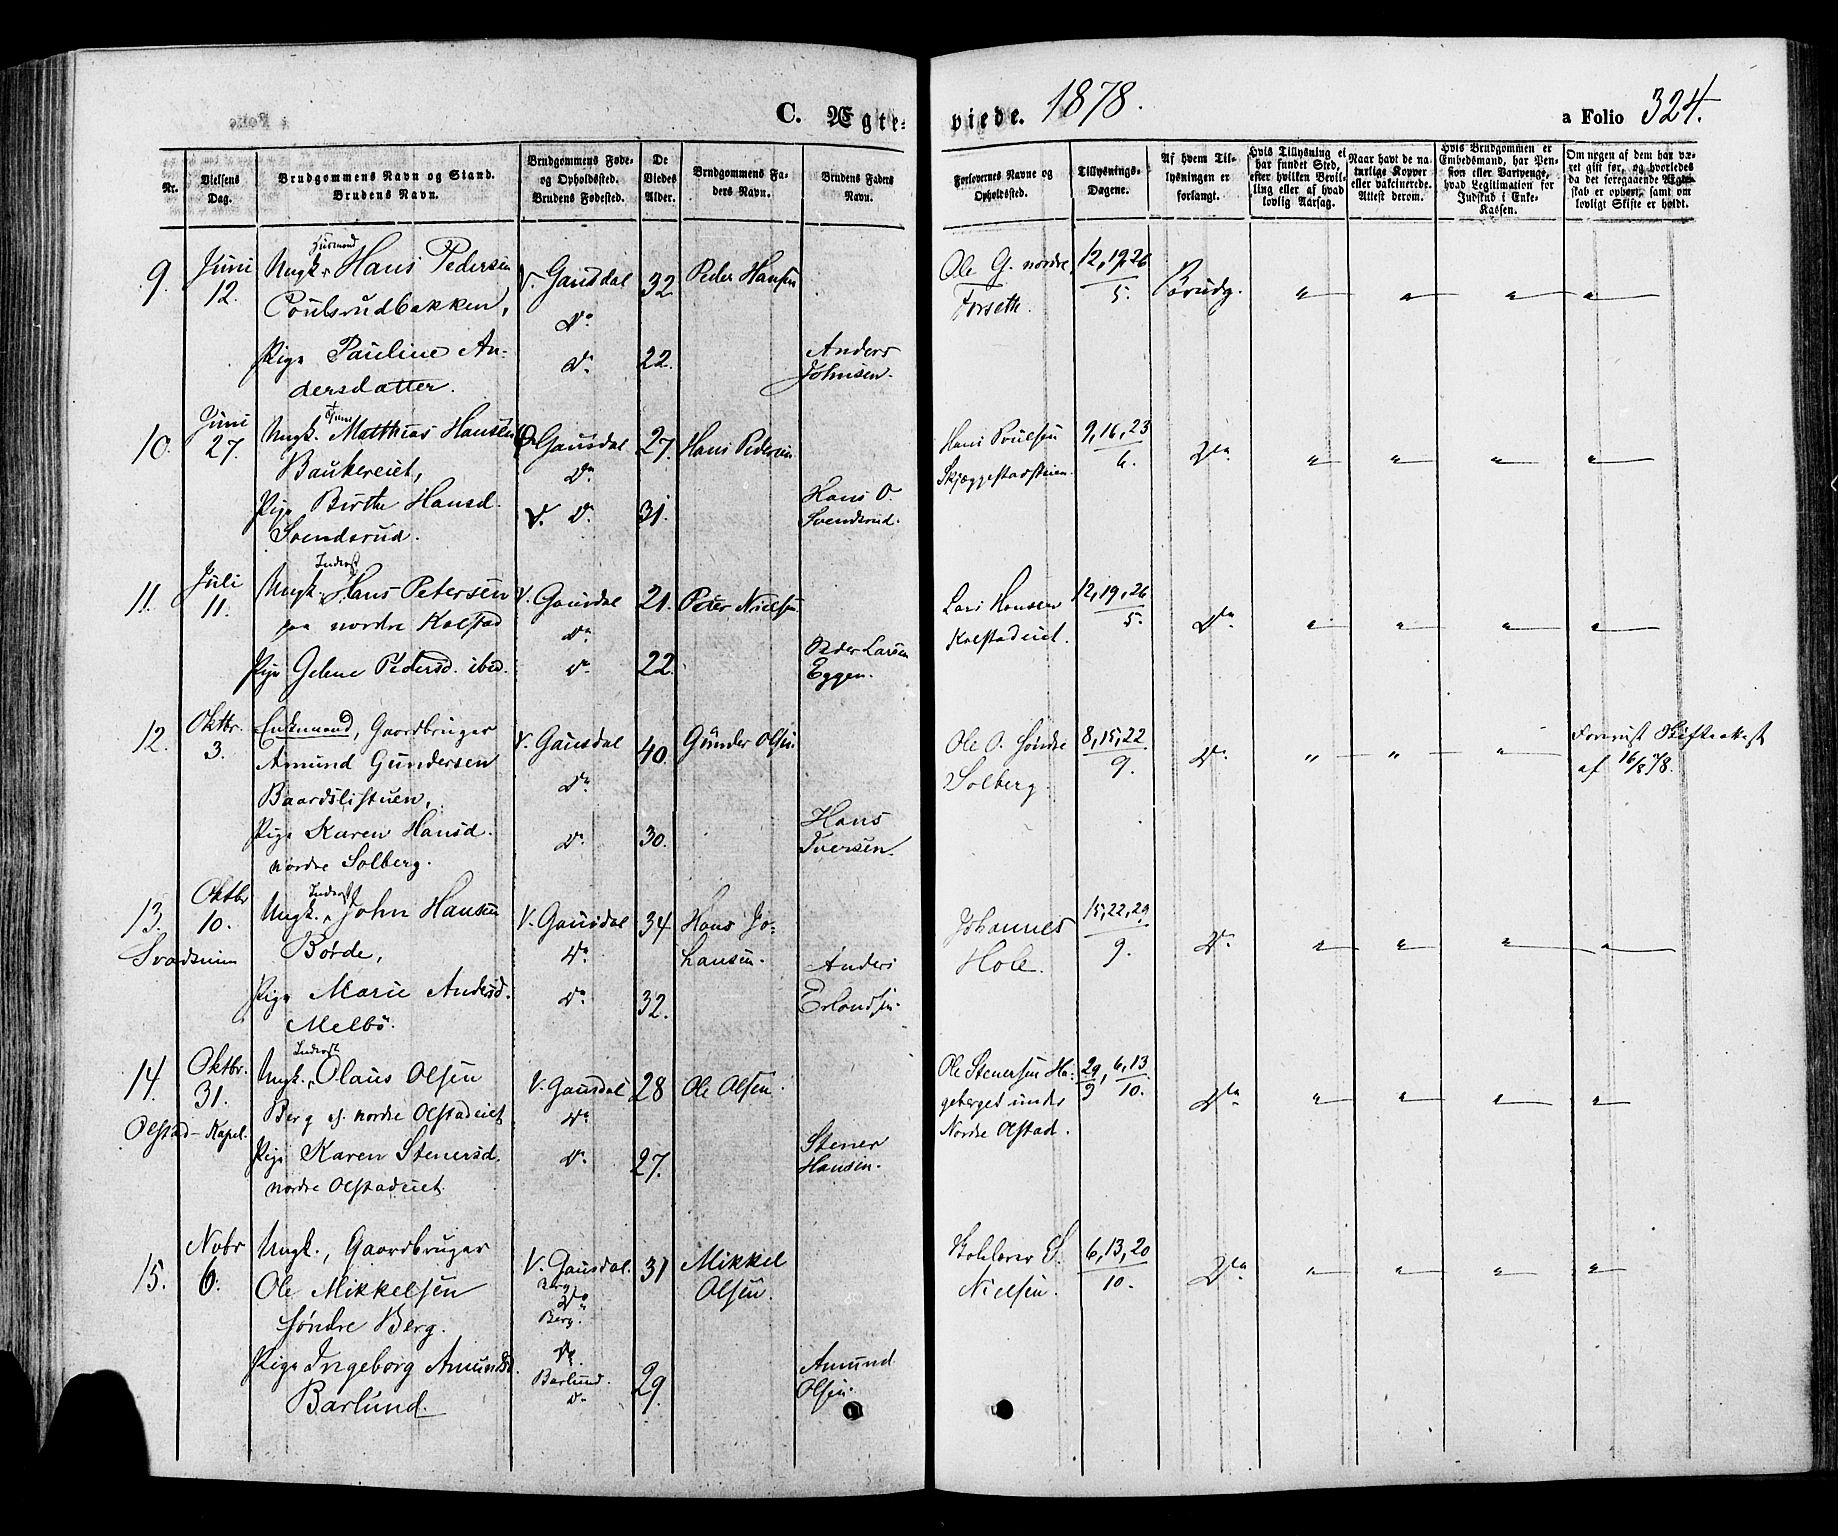 C. Ægte-
viede. 1878.
a Folio 324.
Nr.
Vielsens Dag.
Brudgommens Navn og Stand. Brudens Navn.
Brudgommens Føde- og Opholdssted. Brudens Fødested.
De Viedes Alder.
Brudgommens Faders Navn.
Brudens Faders Navn.
Forlovernes Navne og Opholdssted.
Tillysnings-Dagene.
Af hvem Tillysningen er forlangt.
Hvis Tillysning ei har fundet Sted, efter hvilken Bevilling eller af hvad lovlig Aarsag.
Naar havt de naturlige Kopper eller vakcinerede. Attest derom.
Hvis Brudgommen er Embedsmand, har Pension eller Vartpenge, hvad Legitimation for Indskud i Enke-Kassen.
Om nogen af dem har været gift før, og hvorledes da det foregaaende Ægteskab er ophævt, samt om lovligt Skifte er holdt.
9. Juni 12. Ungk. Husmand Hans Pedersen V. Gausdal 32 Peder Hansen Ole G. nordre 12, 19, 26/5. Brudg. " " " "
Poulsrudbakken, Do Forseth.
Pige Pauline An- Do 22. Anders
dersdatter. Johnsen.
10. Juni 27. Ungk. Matthias Hansen Ø. Gausdal 27. Hans Pedersen Hans Poulsen 9, 16, 23/6. Do " " " "
Baukereiet, Do Skjæggestadstuen.
Pige Birthe Hansd. V. Do 31. Hans O.
Svendsrud. Svendsrud.
11. Juli 11. Ungk. Inderst Hans Petersen V. Gausdal 21. Peter Nielsen Lars Hansen 12, 19, 26/5. Do " " " "
paa nordre Kolstad Do Kolstadeiet.
Pige Gelene Pedersd. ibid. Do 22. Peder Larsen
Eggen.
12. Oktbr. 3. Enkemand, Gaardbruger V. Gausdal 40 Gunder Olsen Ole O. søndre 8, 15, 22/9. Do " " " Forevist Skifteattest
Amund Gundersen Do Solberg. af 16/8 78.
Baardslistuen,
Pige Karen Hansd. Do 30. Hans
nordre Solberg. Iversen.
13. Oktbr 10. Ungk. Inderst John Hansen V. Gausdal 34 Hans Jo- Johannes 15, 22, 29/9. Do " " " "
Svadsum Børde, Do hansen. Hole.
Pige Marie Andersd. Do 32. Anders
Melbø. Erlandsen.
14. Oktbr. 31. Ungk. Inderst Olaus Olsen V. Gausdal 28 Ole Olsen. Ole Stenersen Ha- 29/9, 6, 13/10. Do " " " "
Berg af nordre Olstadeiet Do geberget under
Olstad-Kapel. Nordre Olstad.
Pige Karen Stenersd. Do 27. Stener
nordre Olstadeiet Hansen.
15. Nobr 6. Ungk., Gaardbruger V. Gausdal. 31 Mikkel 6, 13, 20/10. Do " " " "
Ole Mikkelsen Berg Olsen. Nielsen.
søndre Berg. Do Berg.
Pige Ingeborg Amundsd. Do 29. Amund
Barlund. Barlund. Do Olsen.